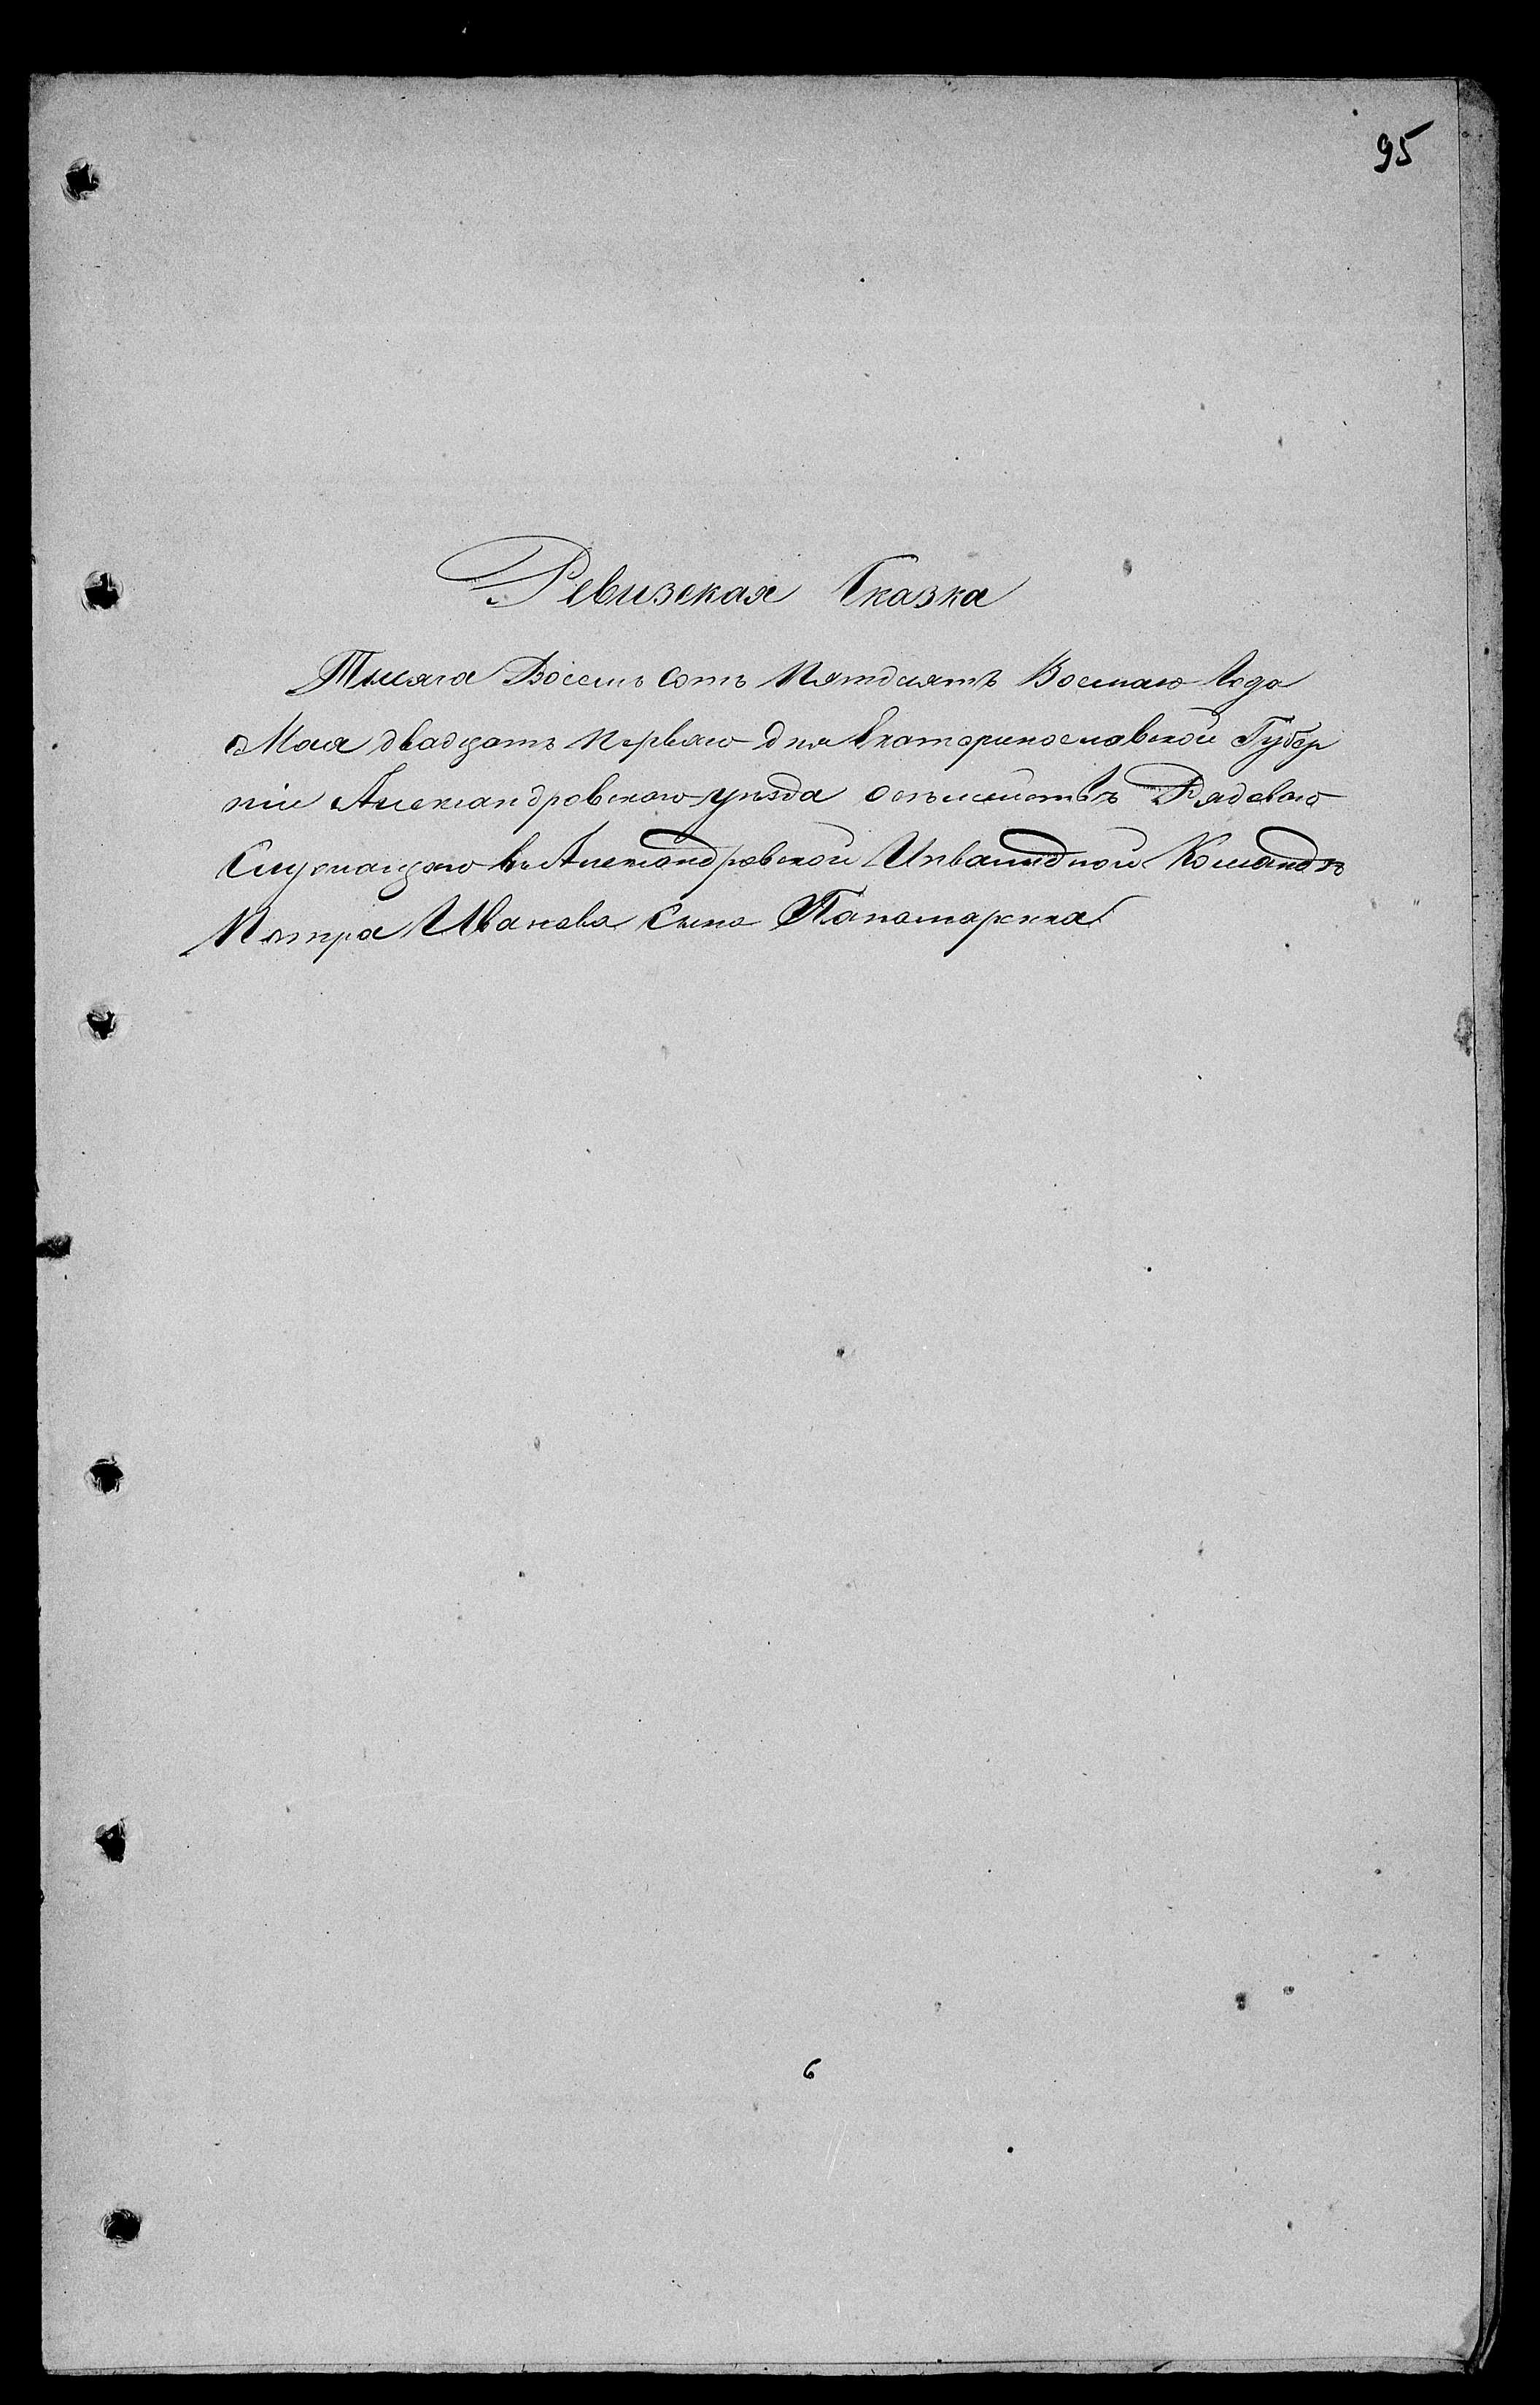 95
Ревизская Сказка
Тысяча Восемь сотъ Пятдесятъ Восмаго Года
Мая двадцать Перваго дня Екатеринославской Губер
ніи Александровскаго уѣзда о семействѣ Рядоваго
Служащаго въ Александровской Инвалидной Командѣ
Петра Иванова Сына Панамаренка
6